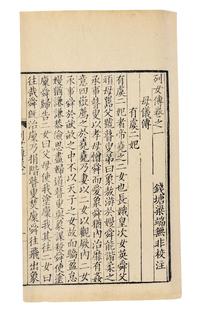 列女傳卷之一
錢塘梁端無非校注
母儀傳
有虞二妃
有虞二妃者帝堯之二女也長娥皇次女英舜父
頑母嚚父號瞽叟弟曰象敖游於嫚舜能諧柔之
承事瞽叟以孝母憎舜而愛象舜猶內治靡有姦
意四嶽薦之於堯堯乃妻以二女以觀厥內二女
承事舜於畎畝之中不以天子之女故而驕盈怠
嫚猶謙謙恭儉思盡婦道瞽叟與象謀殺舜使塗
廩舜歸告二女曰父母使我塗廩我其往二女曰
往哉舜既治廩乃捐階瞽叟焚廩舜往飛出象